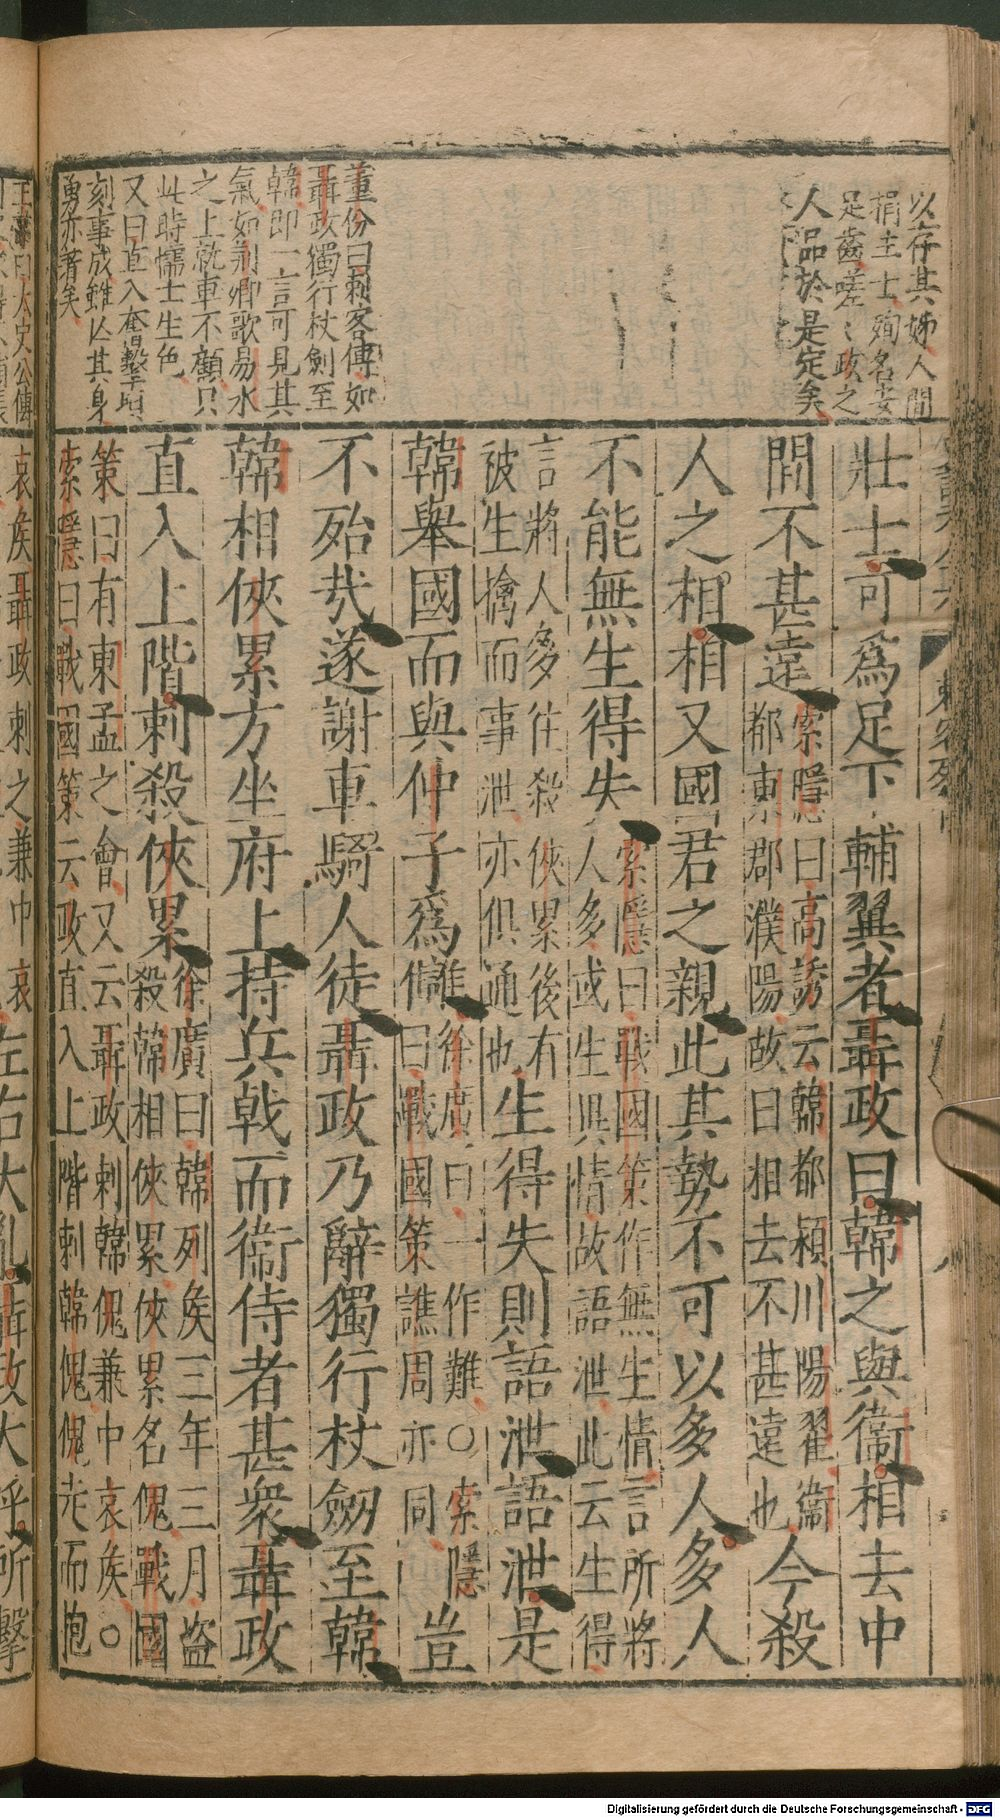 以存其姊人間
捐主士殉名妄
足齒嗟嗟政之
人品於是定矣
董份曰刺客傳如
聶政獨行杖劍至
韓即一言可見其
氣如荊卿歌易水
之上就車不顧只
此時懦士生色
又曰直入奮擊頃
刻事成雖亾其身
勇亦著矣
壯士可爲足下輔翼者聶政曰韓之與衞相去中
間不甚遠索隱曰高誘云韓都潁川陽翟衞
都東郡濮陽故曰相去不甚遠也今殺
人之相相又國君之親此其勢不可以多人多人
不能無生得失索隱曰戰國策作無生情言所將
人多或生異情故語泄此云生得
言將人多往殺俠累後有
被生擒而事泄亦俱通也生得失則語泄語泄是
韓舉國而與仲子爲讎徐廣曰一作難○索隱
曰戰國策譙周亦同豈
不殆哉遂謝車騎人徒聶政乃辭獨行杖劒至韓
韓相俠累方坐府上持兵戟而衞侍者甚衆聶政
直入上階刺殺俠累徐廣曰韓列矦三年三月盜
殺韓相俠累俠累名傀戰國
策曰有東孟之會又云聶政刺韓傀兼中哀矦○
索隱曰戰國策云政直入上階刺韓傀傀走而抱
哀矦聶政刺之兼中哀
左右大亂聶政大呼所擊
王韋曰太史公傳
Digitalisierung gefördert durch die Deutsche Forschungsgemeinschaft - DFG